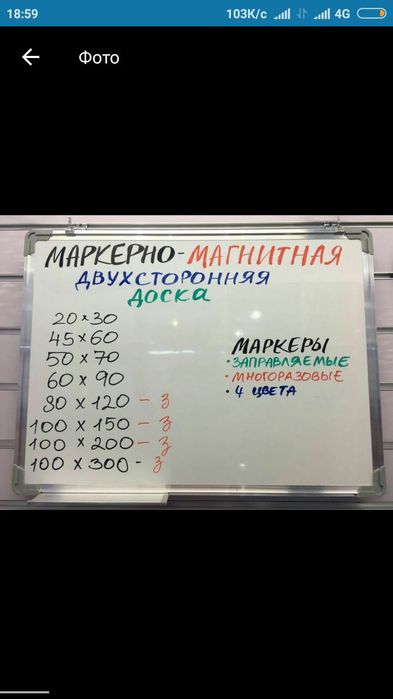 18:59
103К/с
4G
Фото
МАРКЕРНО-МАГНИТНАЯ
ДВУХСТОРОННЯЯ
ДОСКА
20 x 30
45 x 60
50 x 70
60 x 90
80 x 120 - з
100 x 150 - з
100 x 200 - з
100 x 300 - з
МАРКЕРЫ
• ЗАПРАВЛЯЕМЫЕ
• МНОГОРАЗОВЫЕ
• 4 ЦВЕТА